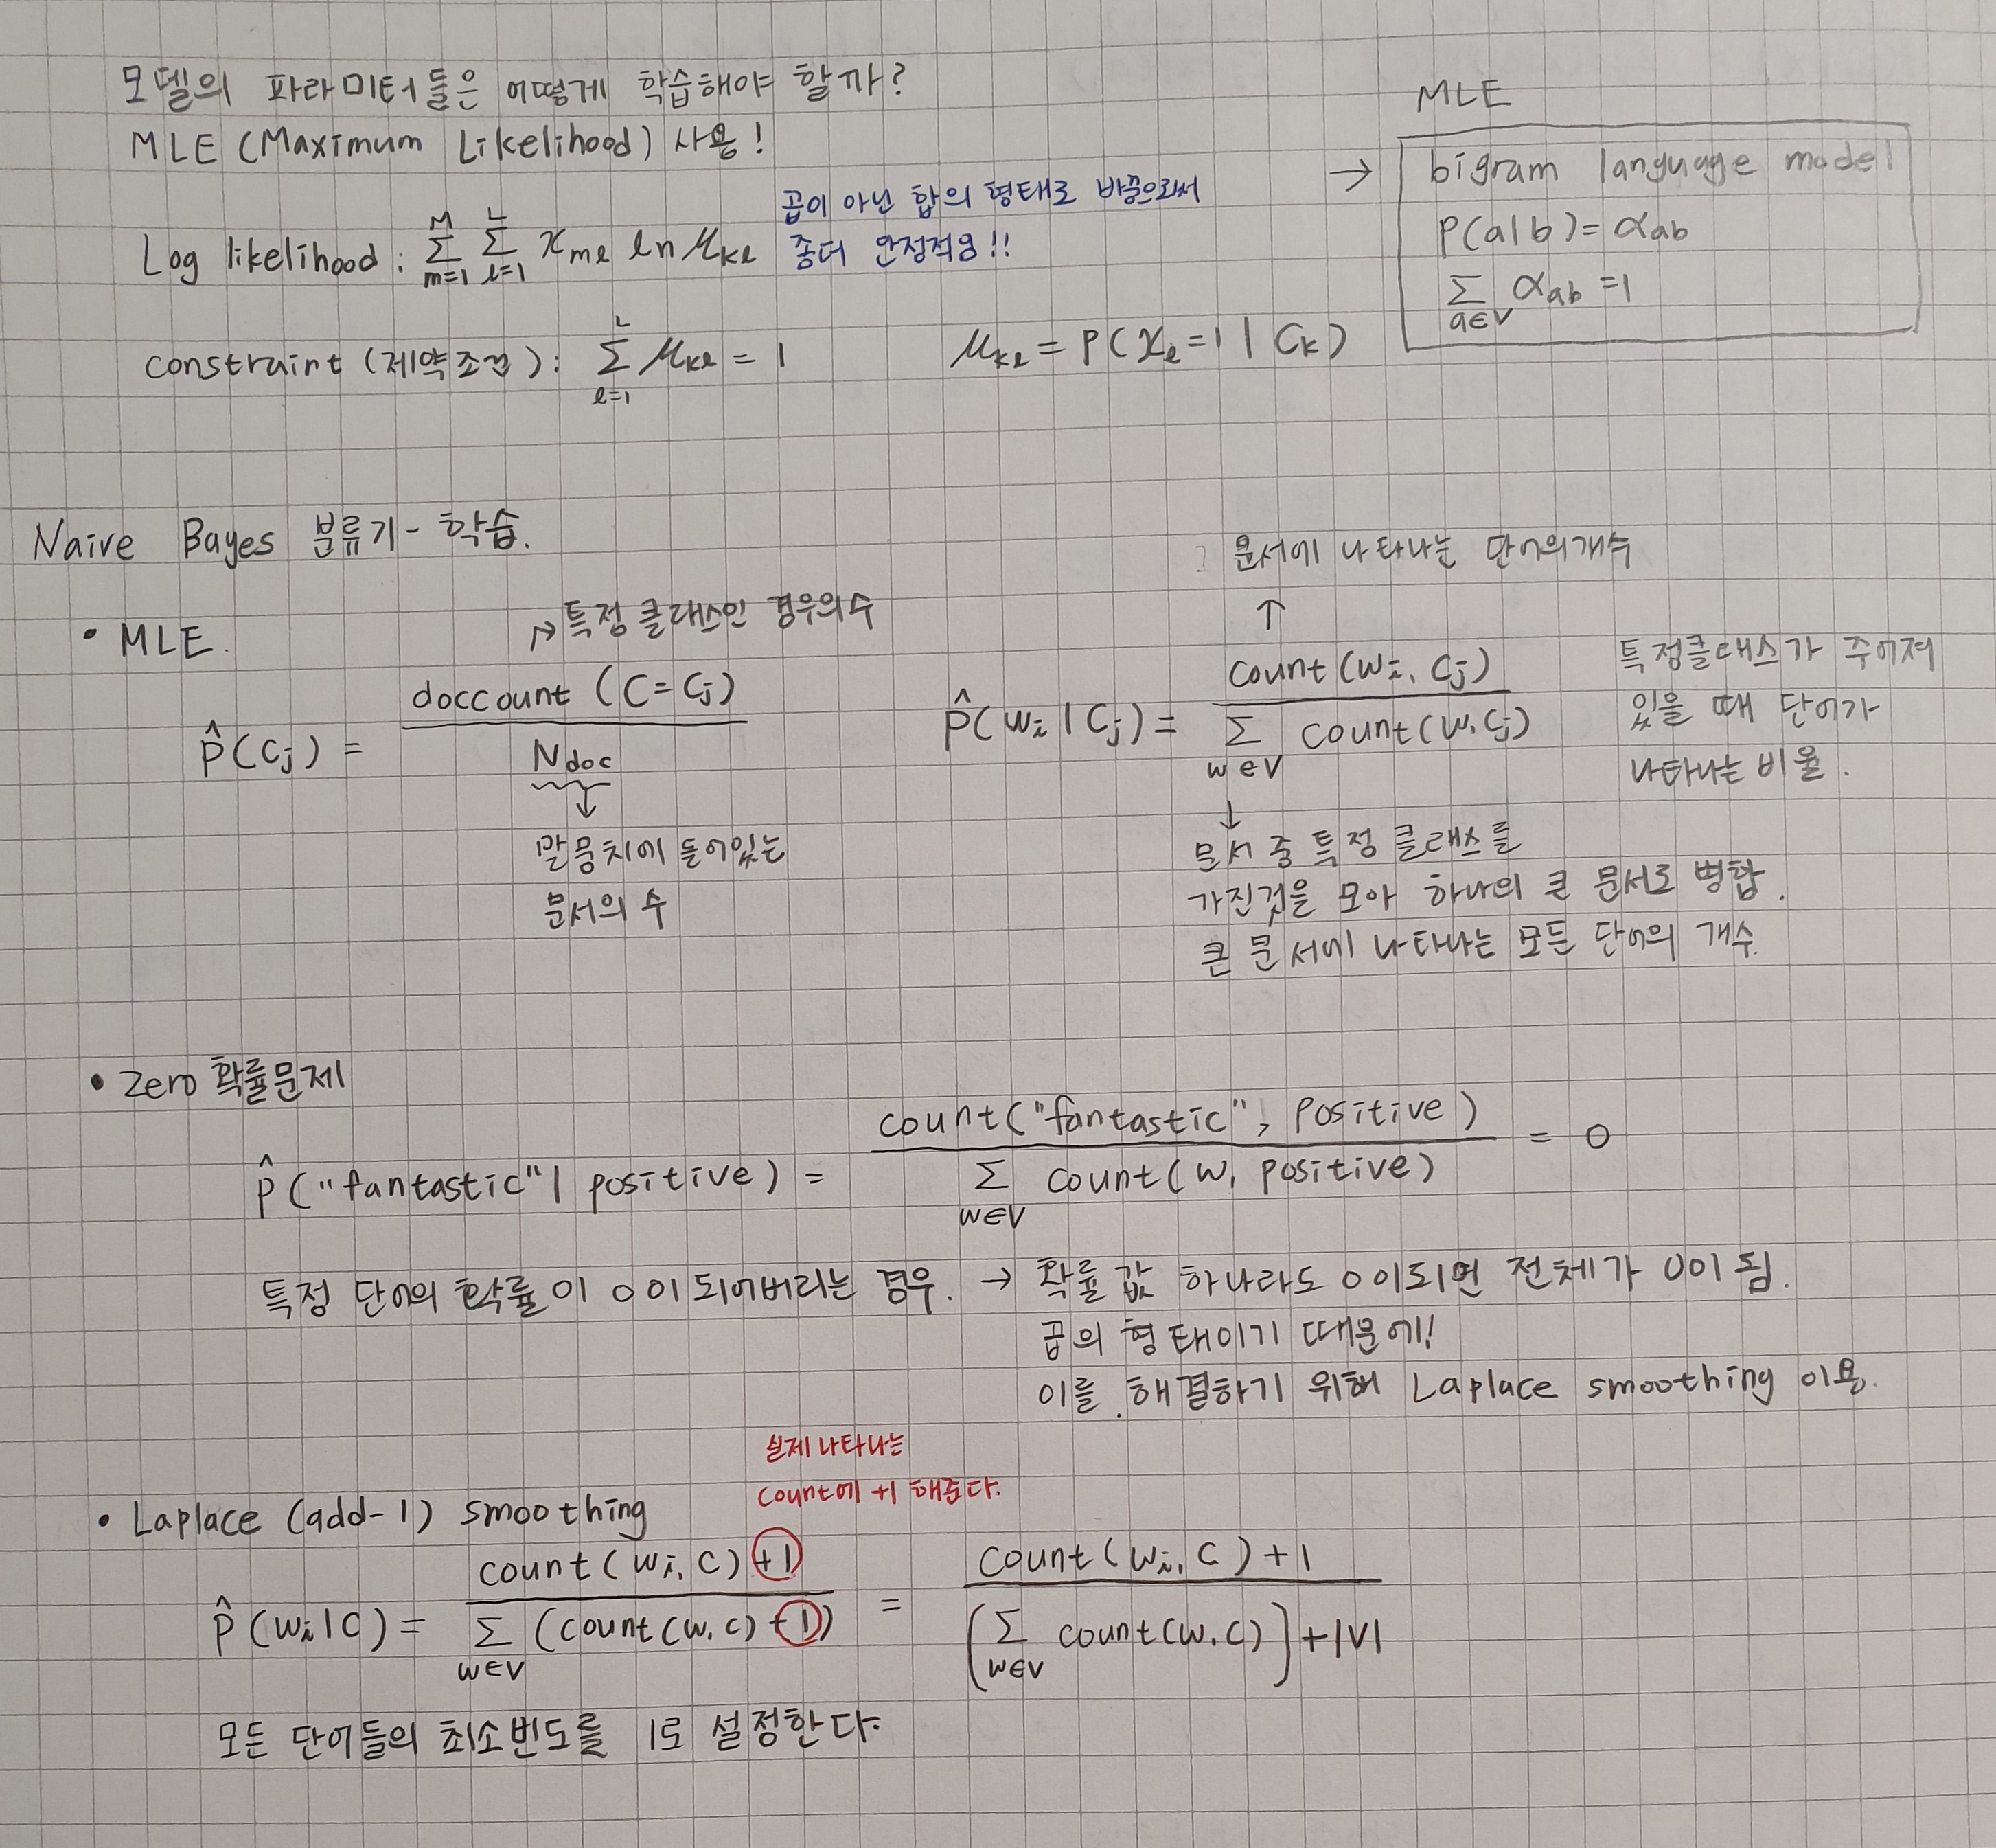 모델의 파라미터들은 어떻게 학습해야 할까?
MLE (Maximum Likelihood) 사용!
Log likelihood : Σ_{m=1}^{M} Σ_{l=1}^{L} x_{ml} ln μ_{kl}
곱이 아닌 합의 형태로 바꿈으로써
좀더 안정적임!!
constraint (제약조건) : Σ_{l=1}^{L} μ_{kl} = 1
μ_{kl} = P(x_l = 1 | C_k)
MLE
→ bigram language model
P(a|b) = α_{ab}
Σ_{a∈V} α_{ab} = 1
Naive Bayes 분류기 - 학습.
• MLE.
→ 특정 클래스인 경우의 수
P̂(Cj) = doccount (C = Cj) / Ndoc
↓
말뭉치에 들어있는
문서의 수
문서에 나타나는 단어의 개수
↑
P̂(wi | Cj) = count(wi, Cj) / Σ_{w∈V} count(w, Cj)
특정클래스가 주어져
있을 때 단어가
나타나는 비율.
↓
문서 중 특정 클래스를
가진것을 모아 하나의 큰 문서로 병합.
큰 문서에 나타나는 모든 단어의 개수.
• Zero 확률문제
P̂("fantastic" | positive) = count("fantastic", positive) / Σ_{w∈V} count(w, positive) = 0
특정 단어의 확률이 0이 되어버리는 경우. → 확률 값 하나라도 0이되면 전체가 0이 됨.
곱의 형태이기 때문에!
이를 해결하기 위해 Laplace smoothing 이용.
실제 나타나는
count에 +1 해준다.
• Laplace (add-1) smoothing
P̂(wi|C) = count(wi, C) +1 / Σ_{w∈V} (count(w, C) +1) = count(wi, C) + 1 / (Σ_{w∈V} count(w, C)] + |V|
모든 단어들의 최소빈도를 1로 설정한다.